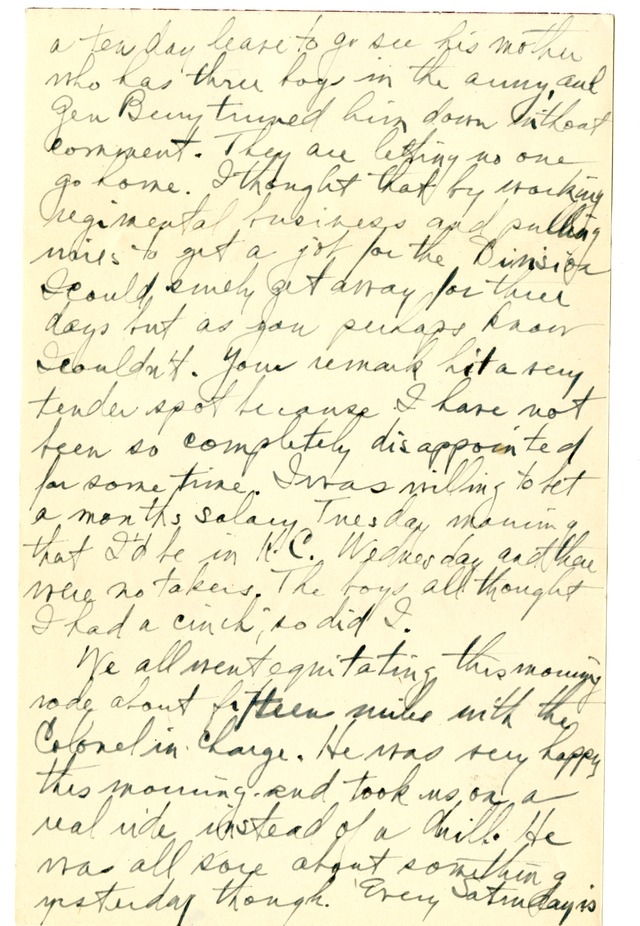 a ten day leave to go see his mother
who has three boys in the army, and
Gen Berry turned him down without
comment. They are letting no one
go home. I thought that by working
regimental business and pulling
wires to get a job for the Division
I could surely get away for three
days but as you perhaps know
I couldn't. Your remark hit a very
tender spot because I have not
been so completely disappointed
for some time. I was willing to bet
a months salary Tuesday morning
that I'd be in K.C. Wednesday and there
were no takers. The boys all thought
I had a cinch, so did I.
We all went equitating this morning
rode about fifteen miles with the
Colonel in charge. He was very happy
this morning and took us on a
real ride instead of a drill. He
was all sore about something
yesterday though. Every Saturday is